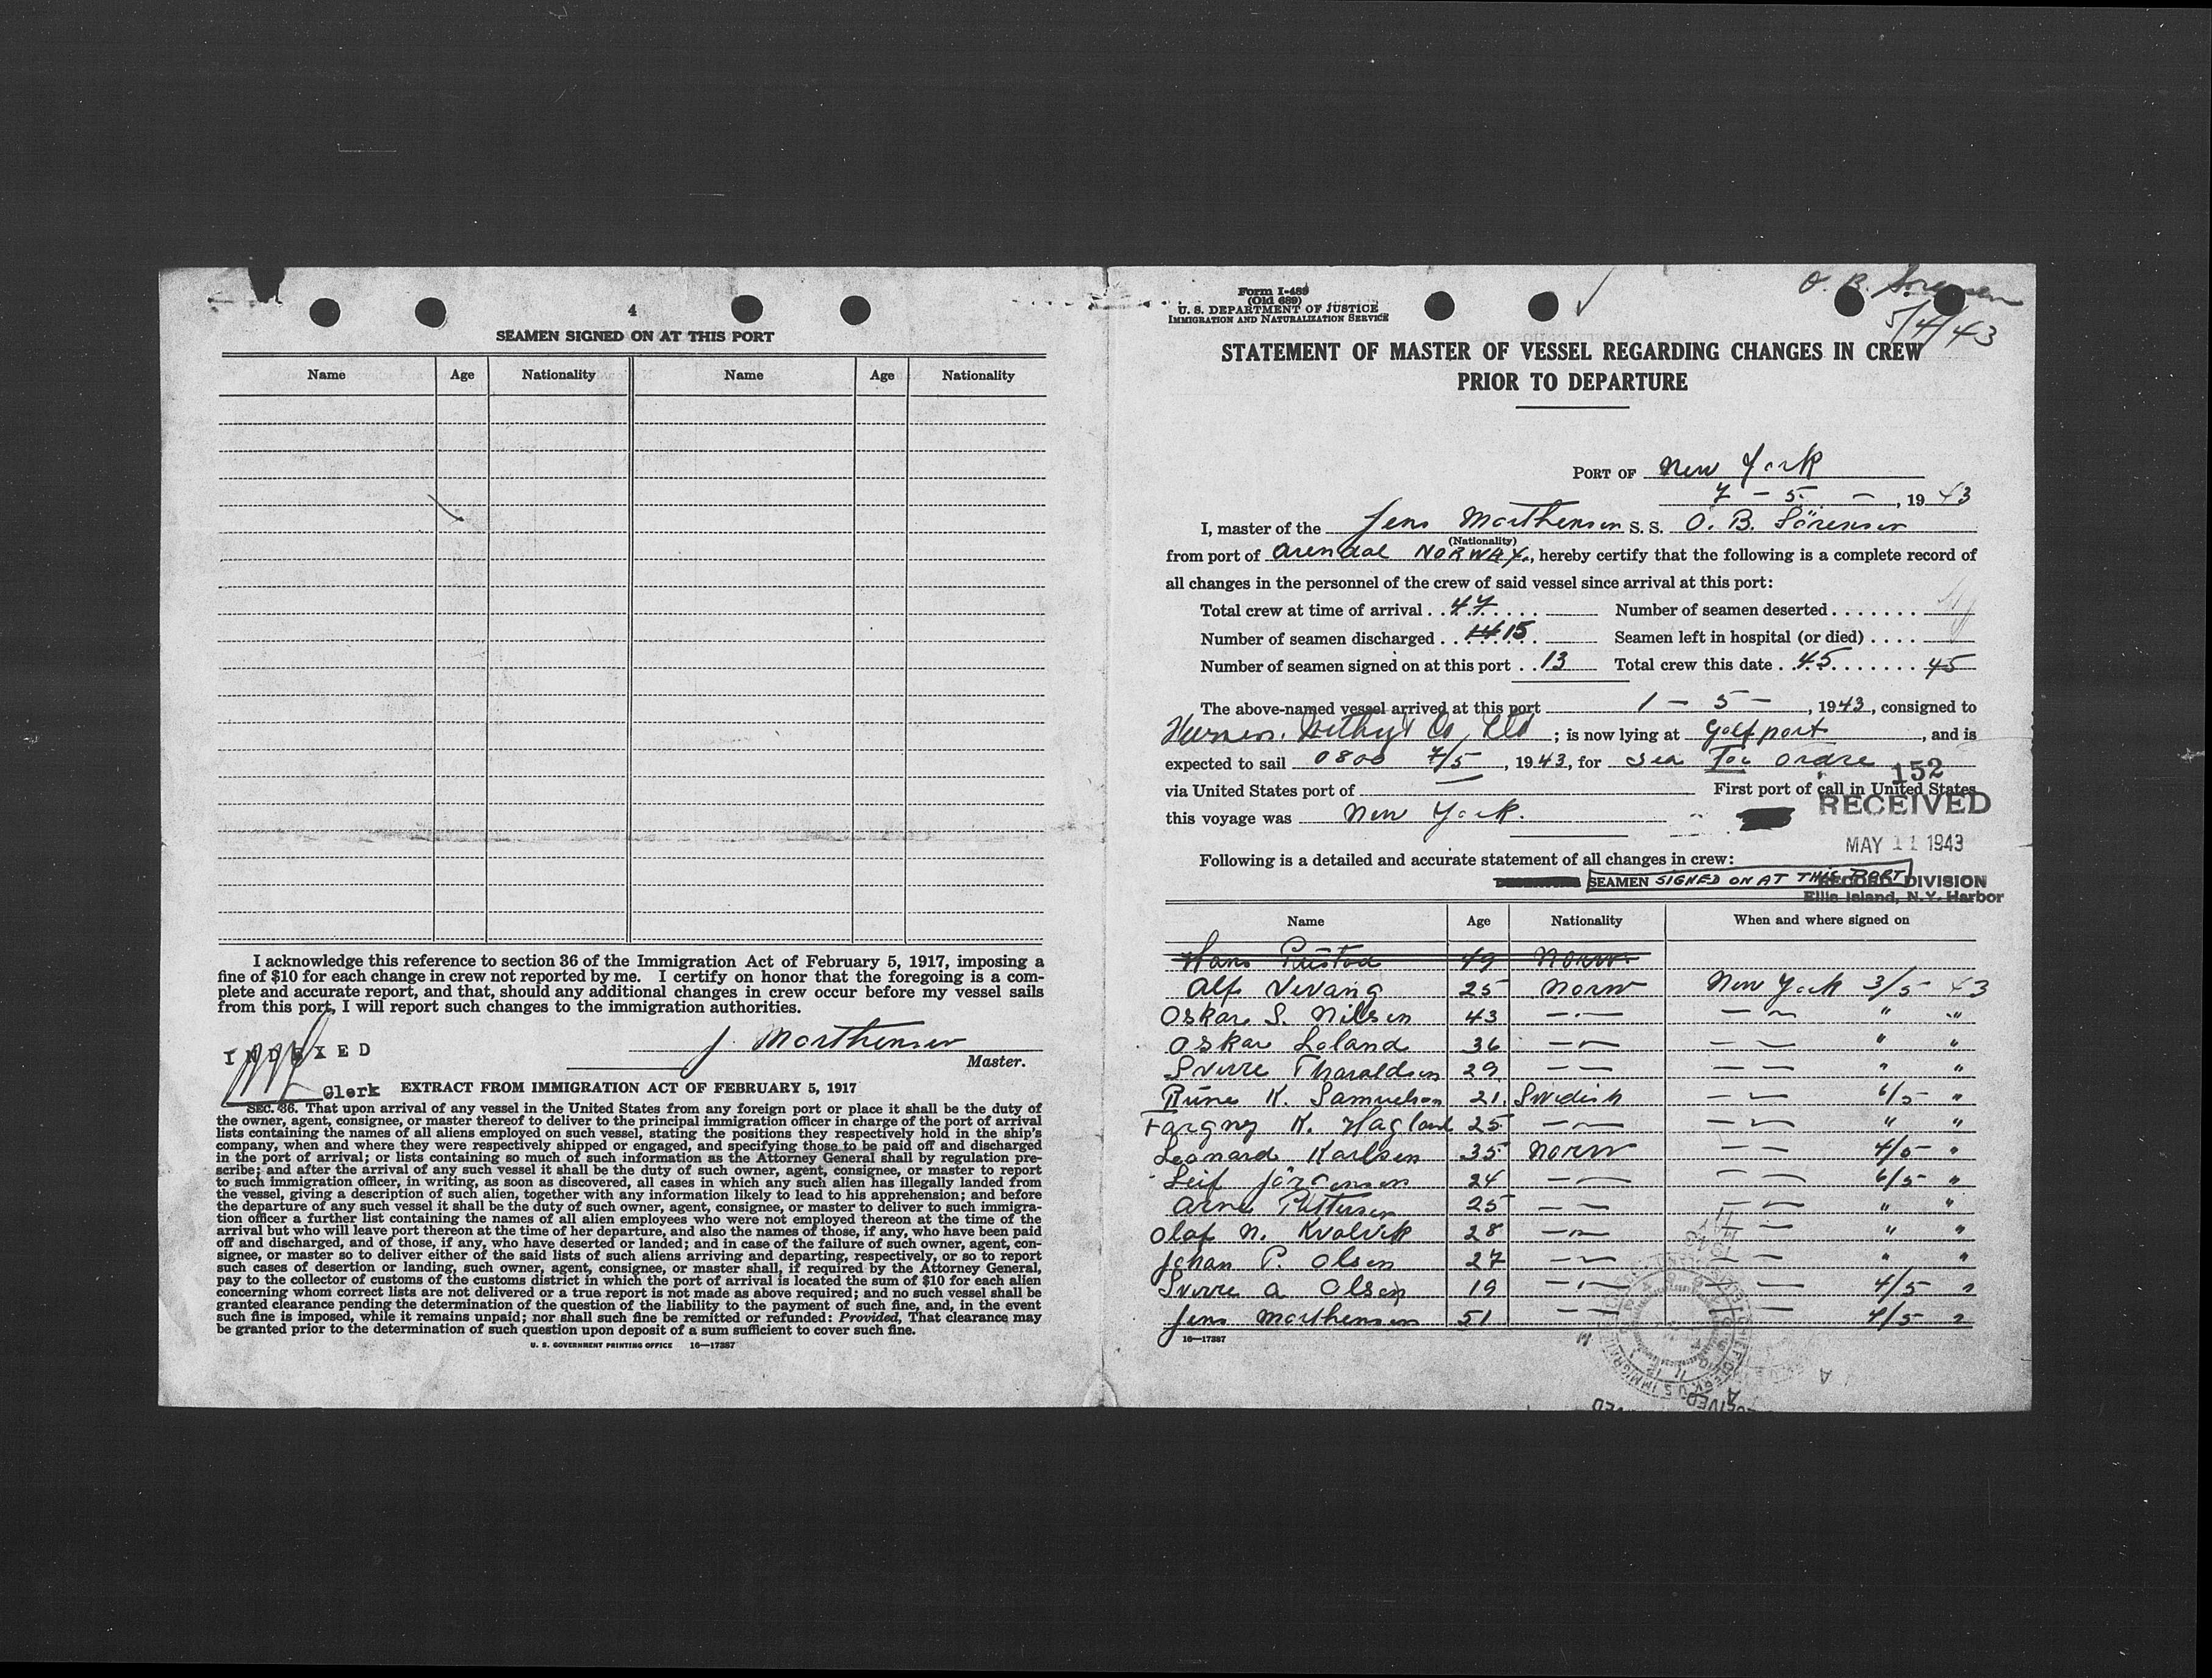 4
SEAMEN SIGNED ON AT THIS PORT
Name Age Nationality Name Age Nationality
I acknowledge this reference to section 36 of the Immigration Act of February 5, 1917, imposing a
fine of $10 for each change in crew not reported by me. I certify on honor that the foregoing is a com-
plete and accurate report, and that, should any additional changes in crew occur before my vessel sails
from this port, I will report such changes to the immigration authorities.
J. Morthensen
Master.
INDEXED
Clerk
EXTRACT FROM IMMIGRATION ACT OF FEBRUARY 5, 1917
SEC. 36. That upon arrival of any vessel in the United States from any foreign port or place it shall be the duty of
the owner, agent, consignee, or master thereof to deliver to the principal immigration officer in charge of the port of arrival
lists containing the names of all aliens employed on such vessel, stating the positions they respectively hold in the ship's
company, when and where they were respectively shipped or engaged, and specifying those to be paid off and discharged
in the port of arrival; or lists containing so much of such information as the Attorney General shall by regulation pre-
scribe; and after the arrival of any such vessel it shall be the duty of such owner, agent, consignee, or master to report
to such immigration officer, in writing, as soon as discovered, all cases in which any such alien has illegally landed from
the vessel, giving a description of such alien, together with any information likely to lead to his apprehension; and before
the departure of any such vessel it shall be the duty of such owner, agent, consignee, or master to deliver to such immigra-
tion officer a further list containing the names of all alien employees who were not employed thereon at the time of the
arrival but who will leave port thereon at the time of her departure, and also the names of those, if any, who have been paid
off and discharged, and of those, if any, who have deserted or landed; and in case of the failure of such owner, agent, con-
signee, or master so to deliver either of the said lists of such aliens arriving and departing, respectively, or so to report
such cases of desertion or landing, such owner, agent, consignee, or master shall, if required by the Attorney General,
pay to the collector of customs of the customs district in which the port of arrival is located the sum of $10 for each alien
concerning whom correct lists are not delivered or a true report is not made as above required; and no such vessel shall be
granted clearance pending the determination of the question of the liability to the payment of such fine, and, in the event
such fine is imposed, while it remains unpaid; nor shall such fine be remitted or refunded: Provided, That clearance may
be granted prior to the determination of such question upon deposit of a sum sufficient to cover such fine.
U. S. GOVERNMENT PRINTING OFFICE 16—17387
Form I-489
(Old 689)
U. S. DEPARTMENT OF JUSTICE
IMMIGRATION AND NATURALIZATION SERVICE
O. B. Sorensen
5/4/43
STATEMENT OF MASTER OF VESSEL REGARDING CHANGES IN CREW
PRIOR TO DEPARTURE
PORT OF New York
7 - 5 - , 19 43
I, master of the Jens Morthensen S. S. O. B. Sörensen
(Nationality)
from port of Arendal NORWAY., hereby certify that the following is a complete record of
all changes in the personnel of the crew of said vessel since arrival at this port:
Total crew at time of arrival . . 47 . . . . Number of seamen deserted . . . . . . .
Number of seamen discharged . . 14 15 . . Seamen left in hospital (or died) . . . .
Number of seamen signed on at this port . . 13 Total crew this date . . 45 . . . . . . . 45
The above-named vessel arrived at this port 1 - 5 - , 1943, consigned to
Co Ltd ; is now lying at Golfport , and is
expected to sail 0800 7/5 , 1943, for sea For ordre
152
via United States port of First port of call in United States
this voyage was New York.
RECEIVED
MAY 11 1943
Following is a detailed and accurate statement of all changes in crew:
SEAMEN SIGNED ON AT THIS PORT
RECORD DIVISION
Ellis Island, N.Y. Harbor
Name Age Nationality When and where signed on
Hans 49 Norw.
Alf Nevang 25 Norw New York 3/5 43
Oskar S. Nilsen 43 — . — — — " "
Oskar Loland 36 — — — — " "
Sverre Tharaldsen 29 — — — — " "
Rune K. Samuelson 21. Swedish — — 6/5 "
Torgny K. Hagland 25 — — — — " "
Leonard Karlsen 35 Norw — — 4/5 "
Leif Jörgensen 24 — — — — 6/5 "
Arne Pettersen 25 — — — — " "
Olaf N. Kvalvik 28 — — — — " "
Johan P. Olsen 27 — — — — " "
Sverre A Olsen 19 — — — — 4/5 "
Jens Morthensen 51 — — — — 4/5 "
16—17387